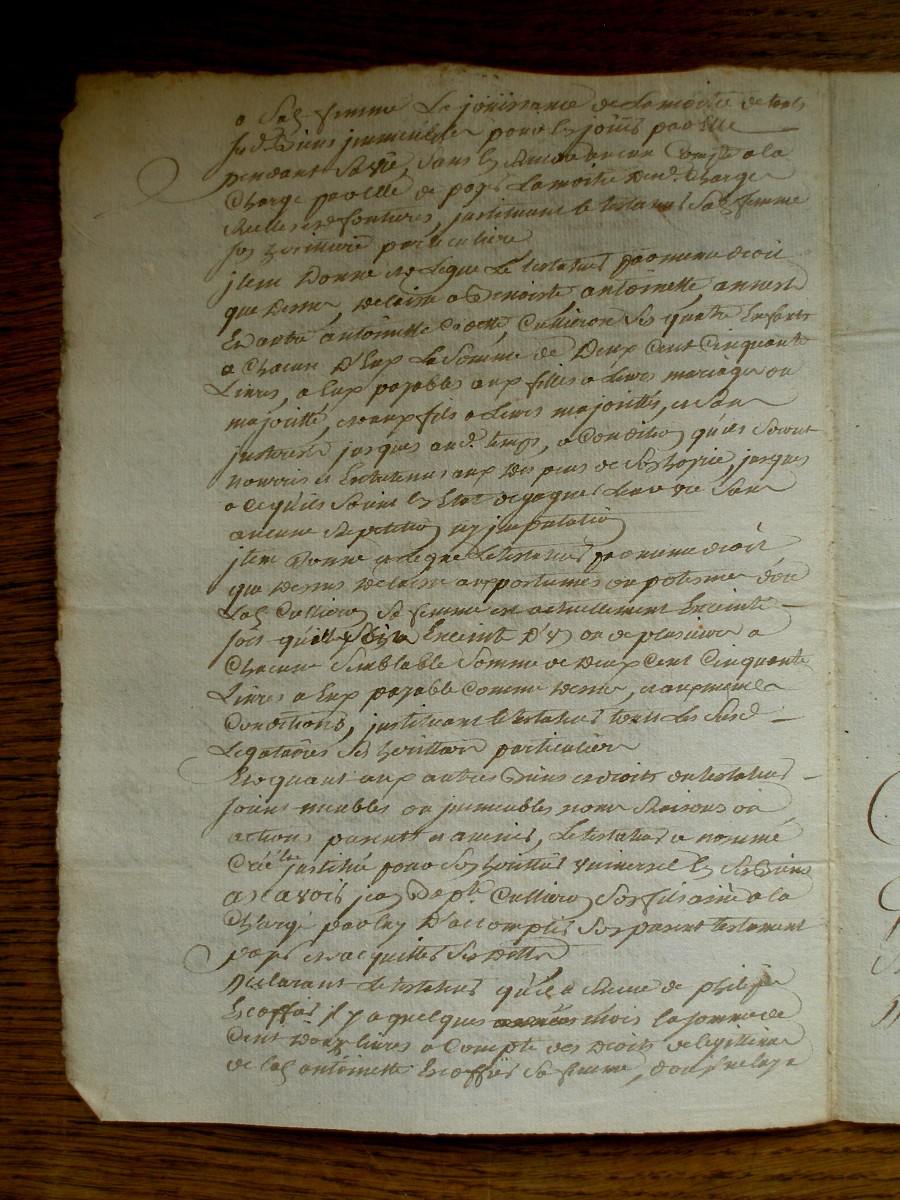 a sad. femme la jouissance de la moitié de tous
sesd. biens immeubles pour en jouir par elle
pendant sa vie, sans en rendre aucun compte a la
charge par elle de payer la moitié desd. charges
reelles et foncieres, instituant le testateur sad. femme
son heritiere particuliere
item donne et legue le testateur par meme droit
que dessus, delaisse a Benoiste antoinette
antoinette Cullieron ses quatre Enfants
a chacun D'Eux la somme de Deux Cent Cinquante
Livres, a Eux payables aux filles a leurs mariages ou
majorité, et aux fils a leurs majorités, et sans
interest jusques aud. temps, a condition qu'ils seront
nourris et Entretenus aux depens de son hoirie, jusques
a ce qu'ils soient en Etat de gagner leur vie sans
aucune repetition ny imputation
item donne et legue le testateur par meme droit
que dessus delaisse aux postumes ou postume dont
lad. sa femme est actuellement Enceinte
soit qu'elle soit Enceinte D'un ou de plusieurs a
chacun semblable somme de deux cent Cinquante
Livres a Eux payable comme dessus, et aux memes
conditions, instituant le testateur tous les susd.
Legataires ses heritiers particuliers
Et quant aux autres biens et droits du testateur
soient meubles ou immeubles noms raisons ou
actions presents et avenir, le testateur a nommé
créé et institué pour son heritier universel en ses biens
a scavoir jean Cullieron son fils ainé a la
charge par luy D'accomplir son present testament
payer et acquitter ses dettes
Declarant le testateur qu'il a receu de philippe
Escoffier il y a quelques mois la somme de
cent livres a compte des droits de legitime
de lad. antoinette Escoffier sa femme,